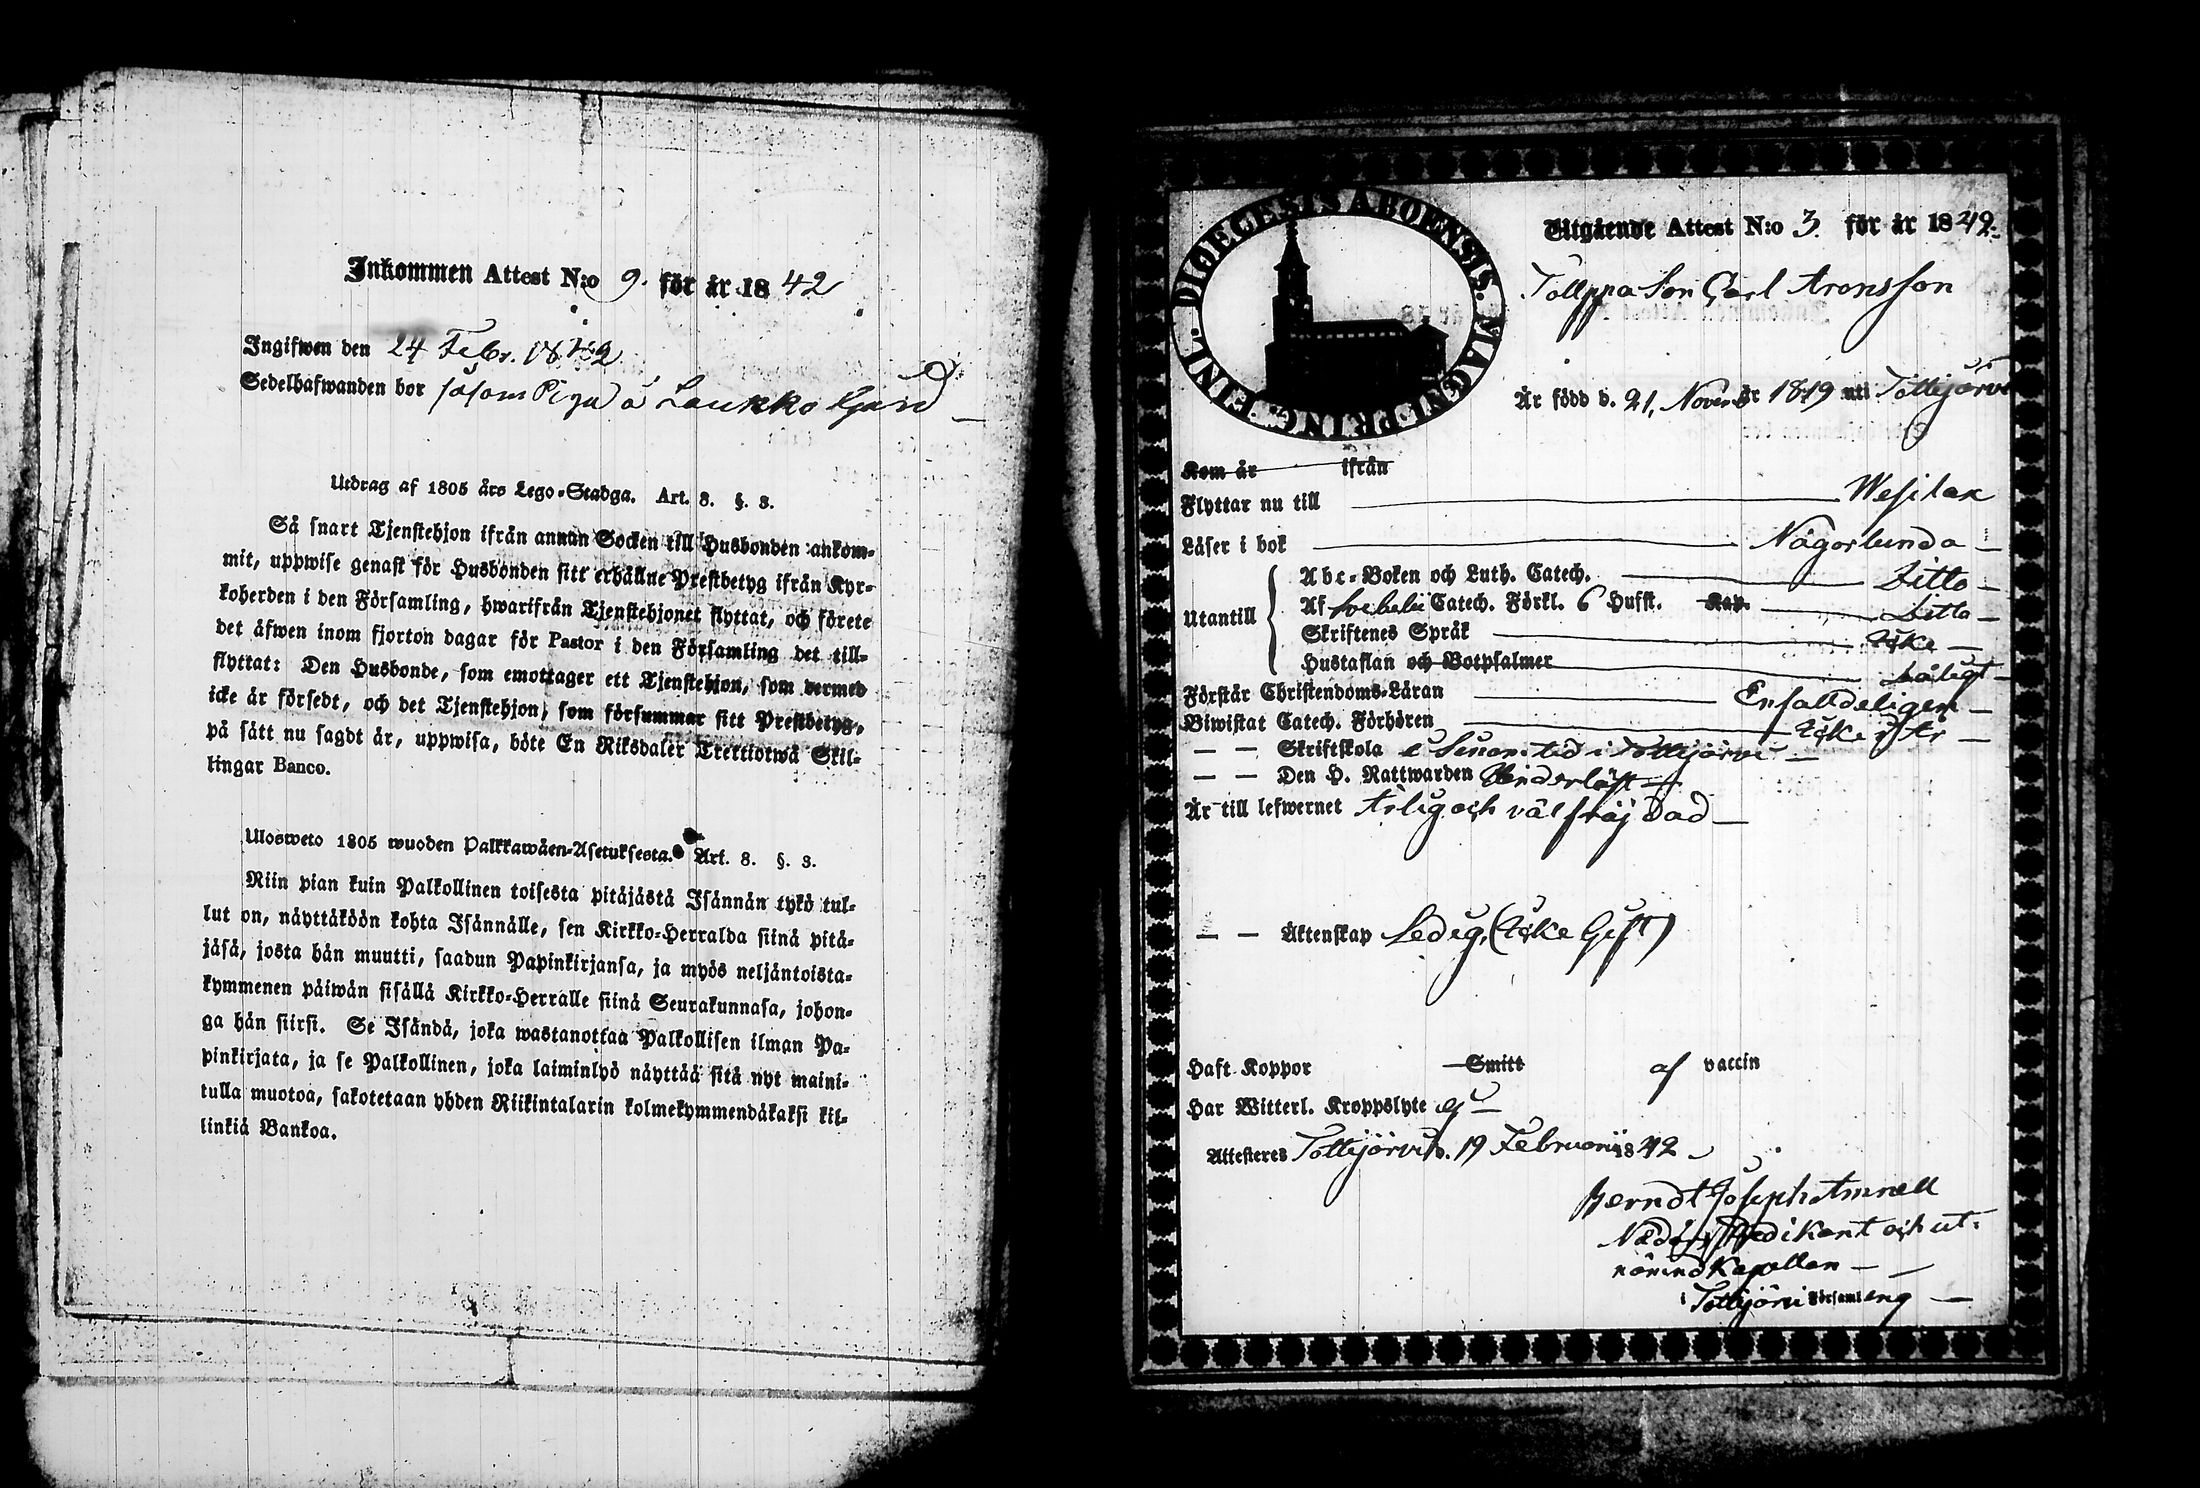 Inkommen Attest N:o 9. för år 1842
Ingifwen den 24 Febr. 1842
Sedelhafwanden bor såsom Piga å Laukko Gård
Utdrag af 1805 års Lego-Stadga. Art. 8. §. 3.
Så snart Tjenstehjon ifrån annan Socken till Husbonden ankom-
mit, uppwise genast för Husbonden sitt erhållne Prestbetyg ifrån Kyr-
koherden i den Församling, hwarifrån Tjenstehjonet flyttat, och förete
det äfwen inom fjorton dagar för Pastor i den Församling det till-
flyttat: Den Husbonde, som emottager ett Tjenstehjon, som dermed
icke är försedt, och det Tjenstehjon, som försummar sitt Prestbetyg,
på sätt nu sagdt är, uppwisa, böte En Riksdaler Trettiotwå Skil-
lingar Banco.
Ulosweto 1805 wuoden Palkkawäen-Asetuksesta. Art. 8. §. 3.
Niin pian kuin Palkollinen toisesta pitäjästä Isännän tykö tul-
lut on, näyttäköön kohta Isännälle, sen Kirkko-Herralda siinä pitä-
jäsä, josta hän muutti, saadun Papinkirjansa, ja myös neljäntoista-
kymmenen päiwän sisällä Kirkko-Herralle siinä Seurakunnasa, johon-
ga hän siirsi. Se Isändä, joka wastanottaa Palkollisen ilman Pa-
pinkirjata, ja se Palkollinen, joka laiminlyö näyttää sitä nyt maini-
tulla muotoa, sakotetaan yhden Riikintalarin kolmekymmendäkaksi kil-
linkiä Bankoa.
DIOECESIS ABOENSIS. MAGNI PRINC. FINL.
Utgående Attest N:o 3. för år 1842.
Carl Aronsson
Är född d. 21, Novem år 1819 uti Tottijärvi
Kom år ifrån
Flyttar nu till Wesilax
Läser i bok Någorlunda
Utantill
Abc-Boken och Luth. Catech. Ditto
Af Svebelii Catech. Förkl. 6 Hufst. Kap. Ditto
Skriftenes Språk Icke
Hustaflan och Botpsalmer Dåligt
Förstår Christendoms-Läran Enfalldeligen
Biwistat Catech. Förhören Icke i År
— — Skriftskola i Tottijärvi
— — Den H. Nattwarden Hinderlöst
Är till lefwernet Ärlig och väl fräjdad
— — Äktenskap Ledig, (Icke Gift)
Haft Koppor Smitt af vaccin
Har Witterl. Kroppslyte ej
Attesteres Tottijärvi d. 19 Februarii 1842
Berndt Joseph
Nåd. Års Predikant och ut-
nämnd Kapellan
i Tottijärvi Församling